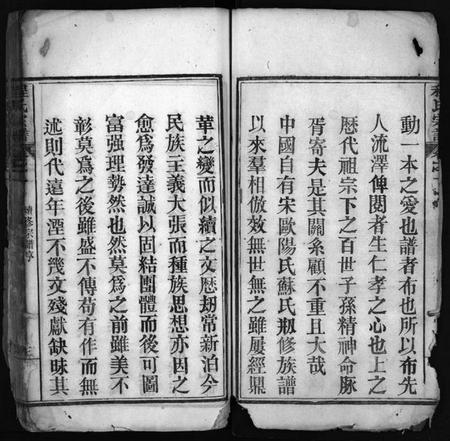 動一本之愛也譜者布也所以布先
人流澤俾閱者生仁孝之心也上之
歷代祖宗下之百世子孫精神命脉
胥寄夫是其關系顧不重且大哉
中國自有宋歐陽氏蘇氏剏修族譜
以來羣相倣效無世無之雖屢經鼎
革之變而似續之文歷刼常新泊今
民族主義大張而種族思想亦因之
愈為發達誠以固結團體而後可圖
富强理勢然也然莫為之前雖美不
彰莫為之後雖盛不傳苟有作而無
述則代遠年湮不幾文殘獻缺昧其
程氏宗譜